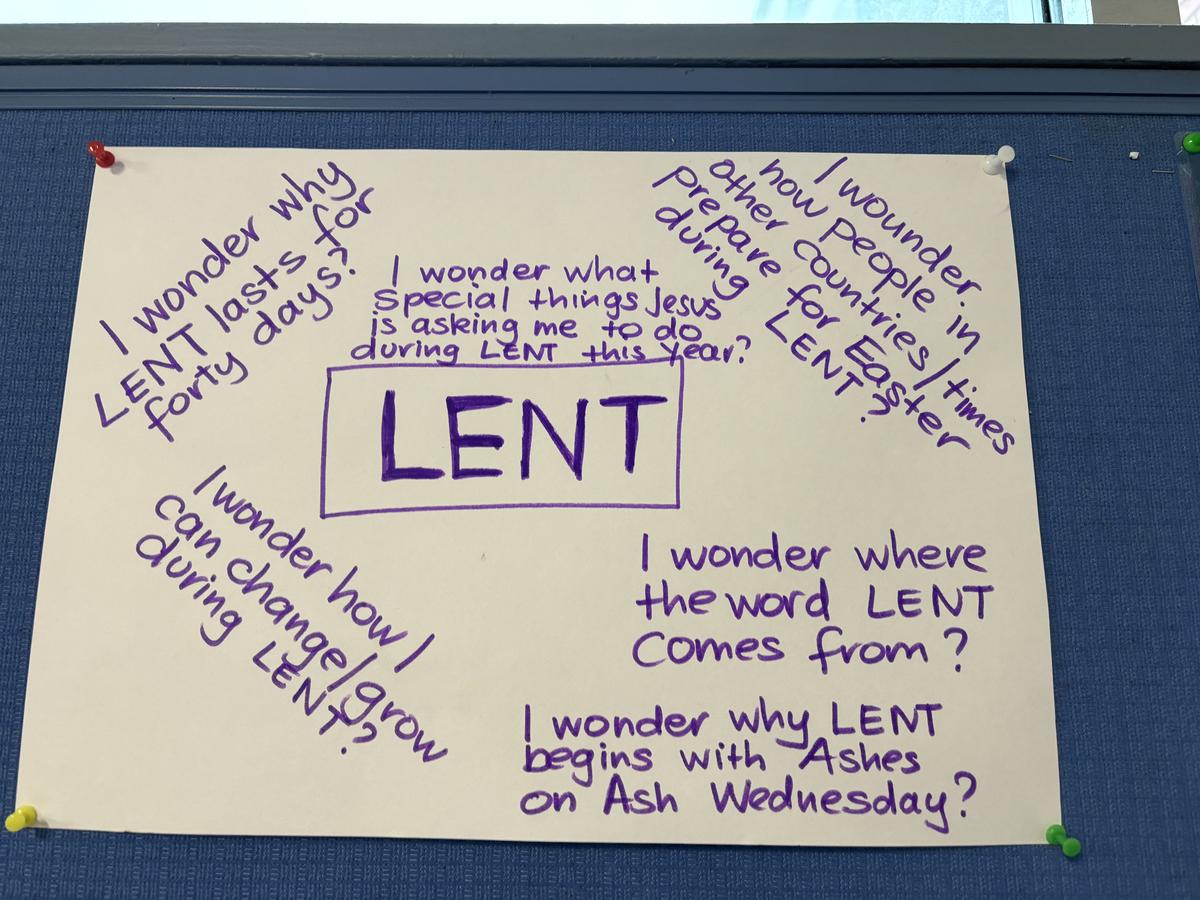 I wonder why
LENT lasts for
forty days?
I wonder what
special things Jesus
is asking me to do
during LENT this year?
I wounder.
how people in
other countries/times
prepare for Easter
during LENT?
LENT
I wonder how I
can change/grow
during LENT?
I wonder where
the word LENT
comes from?
I wonder why LENT
begins with Ashes
on Ash Wednesday?